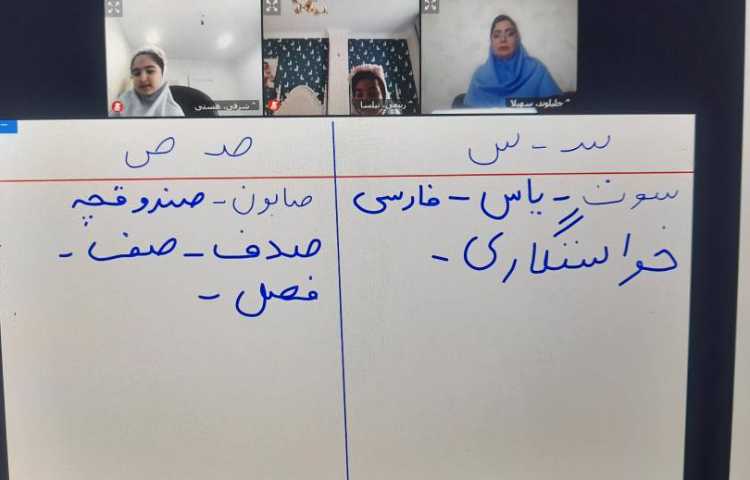 شرفی، هستی
جلیلوند، سهیلا
سـ - س
سوت - یاس - فارسی
خواستگاری -
صـ ص
صابون - صندوقچه
صدف - صف -
فصل -